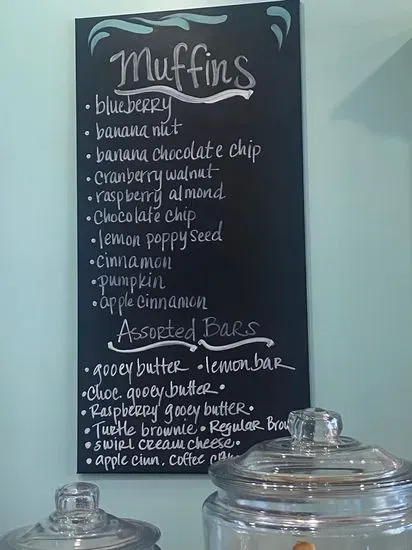 Muffins
• blueberry
• banana nut
• banana chocolate chip
• cranberry walnut
• raspberry almond
• chocolate chip
• lemon poppy seed
• cinnamon
• pumpkin
• apple cinnamon
Assorted Bars
• gooey butter • lemon bar
• Choc. gooey butter •
• Raspberry gooey butter •
• Turtle brownie • Regular
• swirl cream cheese •
• apple cinn. coffee